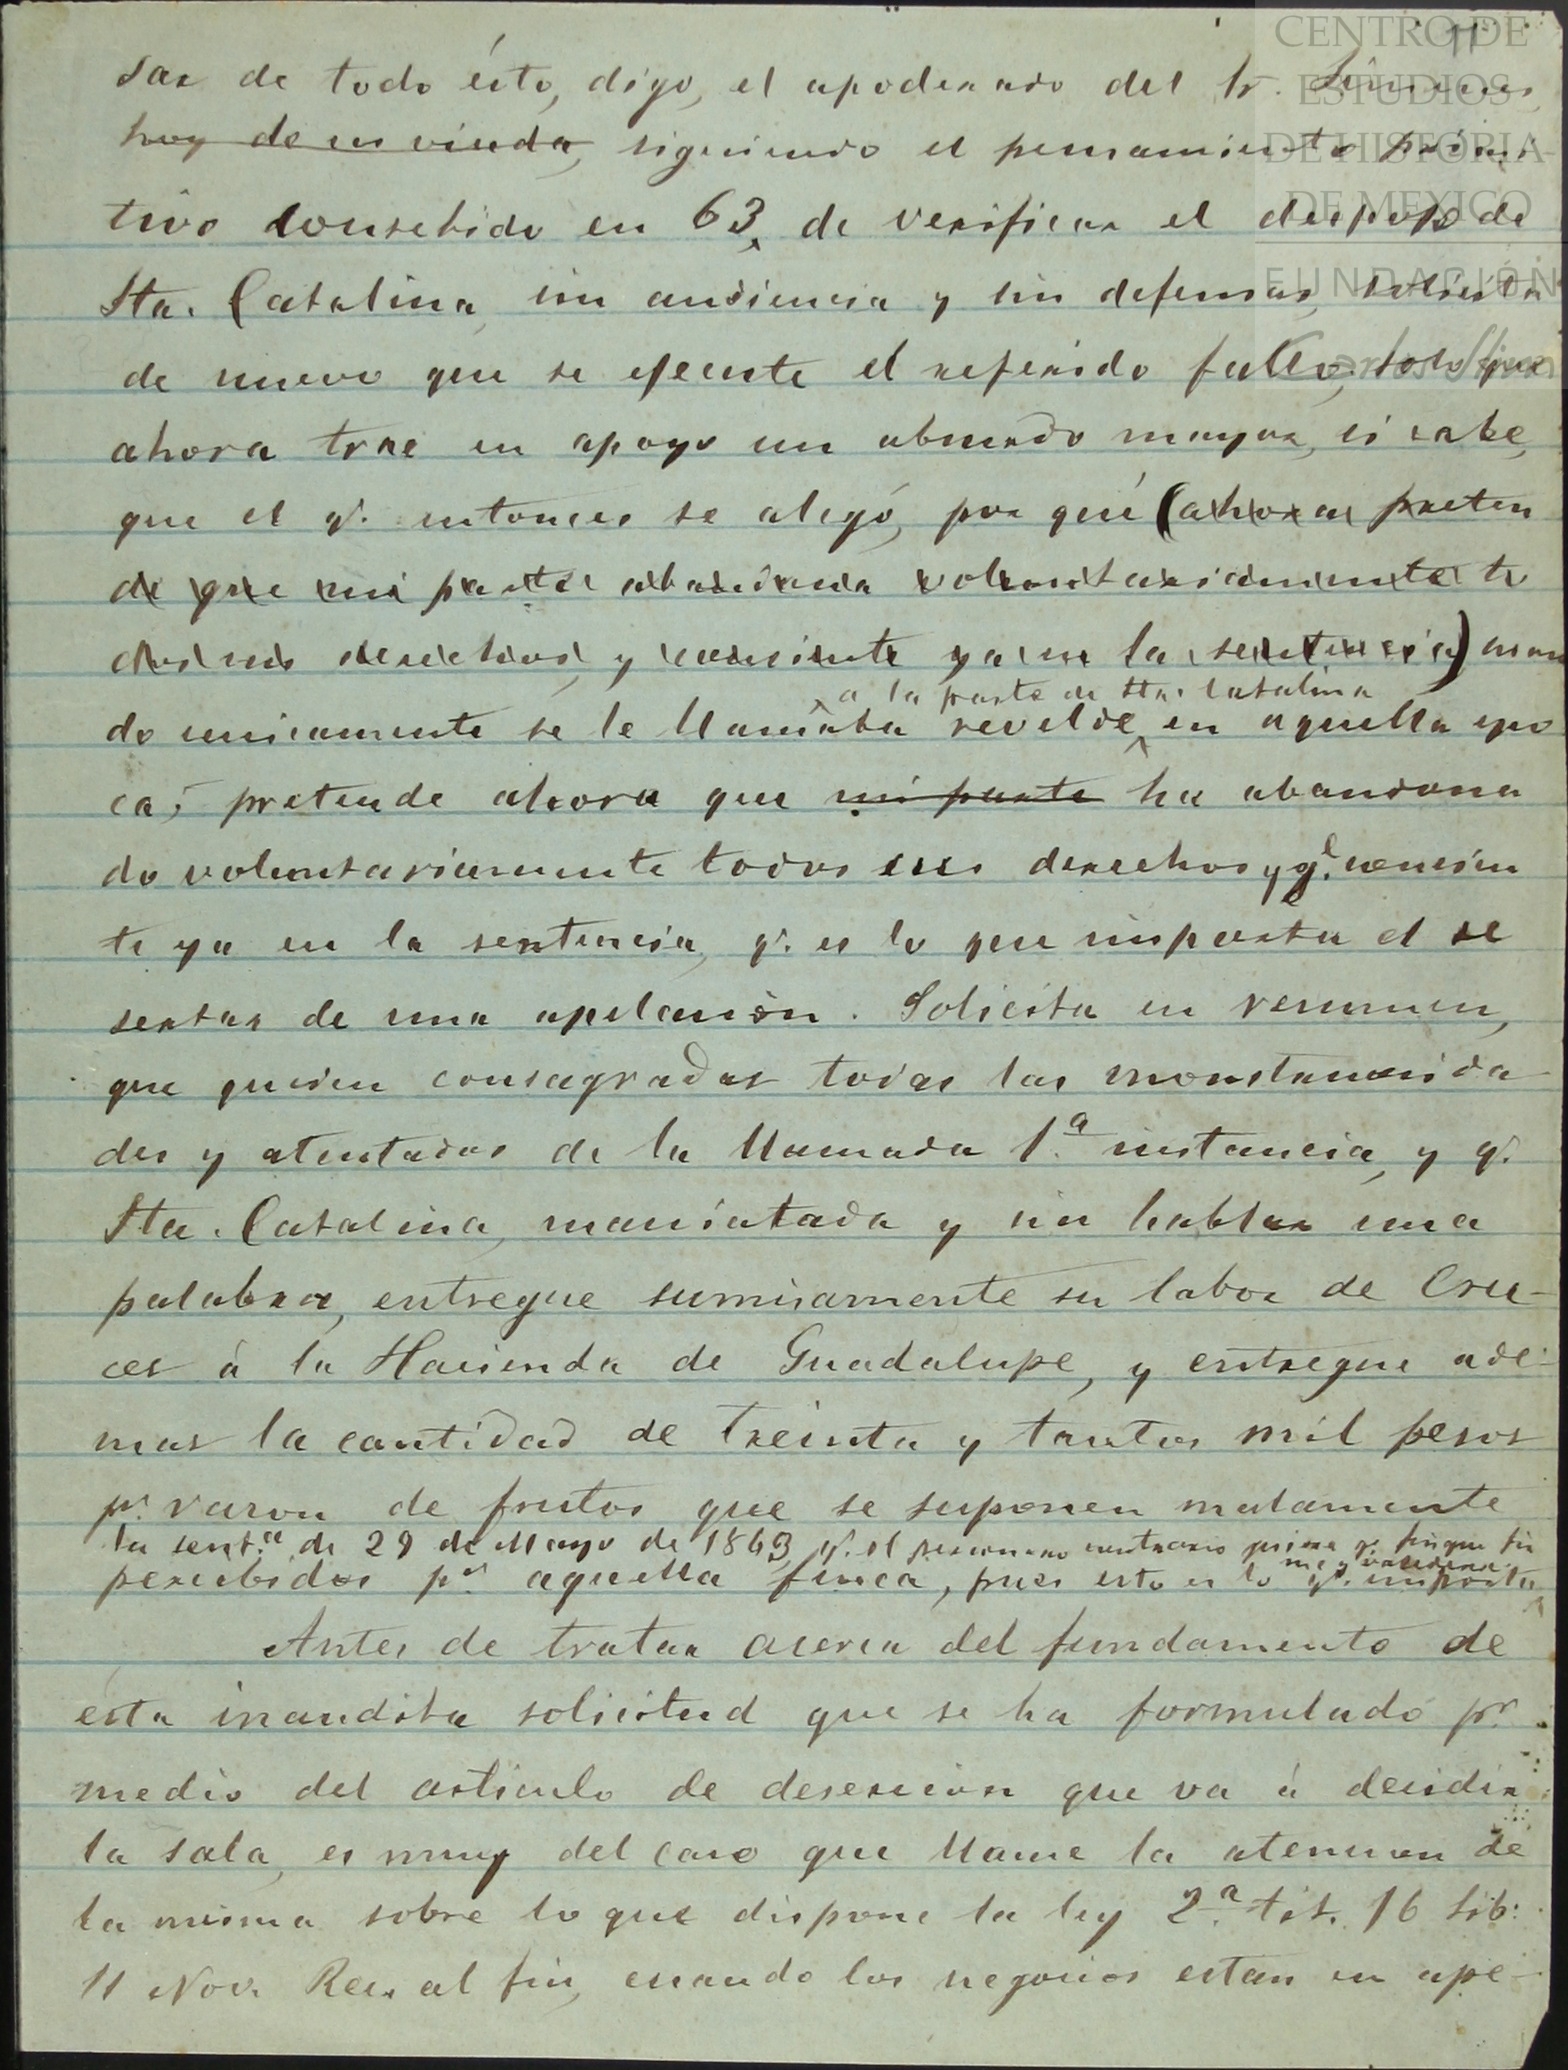 11
sar de todo ésto, digo, el apoderado del Sr. Jimenes,
hoy de su viuda, siguiendo el pensamiento primi
tivo consebido en 63, de verificar el despojo de
Sta. Catalina, sin audiencia y sin defensas, solisita
de nuevo que se ejecute el referido fallo, solo que
ahora trae en apoyo un absurdo mayor, es sabe,
que el q.e entonces se alegó, por qué (ahora preten
de que mi parte abandona voluntariamente to
dos mis derechos, y consiente ya en la sentencia) cuan
a la parte de Sta. Catalina
do unicamente se le llamaba revelde en aquella epo
ca; pretende ahora que mi parte ha abandona
do voluntariamente todos sus derechos y q.e consien
te ya en la sentencia, q.e es lo que importa el de
sertar de una apelación. Solicita en resumen,
que queden consagradas todas las monstruosida
des y atentados de la llamada 1.a instancia, y q.e
Sta. Catalina, maniatada y sin hablar una
palabra, entregue sumisamente su labor de Cru-
ces á la Hacienda de Guadalupe, y entregue ade-
mas la cantidad de treinta y tantos mil pesos
p.r rason de frutos que se suponen malamente
la sent.a de 29 de Mayo de 1863, q.e el personero contrario quiere q.e tengan fir
me y valedera
persibidos p.r aquella finca, pues esto es lo q.e importa
Antes de tratar acerca del fundamento de
esta inaudita solicitud que se ha formulado p.r
medio del articulo de desercion que va á decidir
la sala, es muy del caso que llame la atencion de
la misma sobre lo que dispone la ley 2.a tit. 16 lib.
11 Nov. Rec. al fin, cuando los negocios estan en ape-
CENTRO DE
ESTUDIOS
DE HISTORIA
DE MEXICO
FUNDACIÓN
Carlos Slim